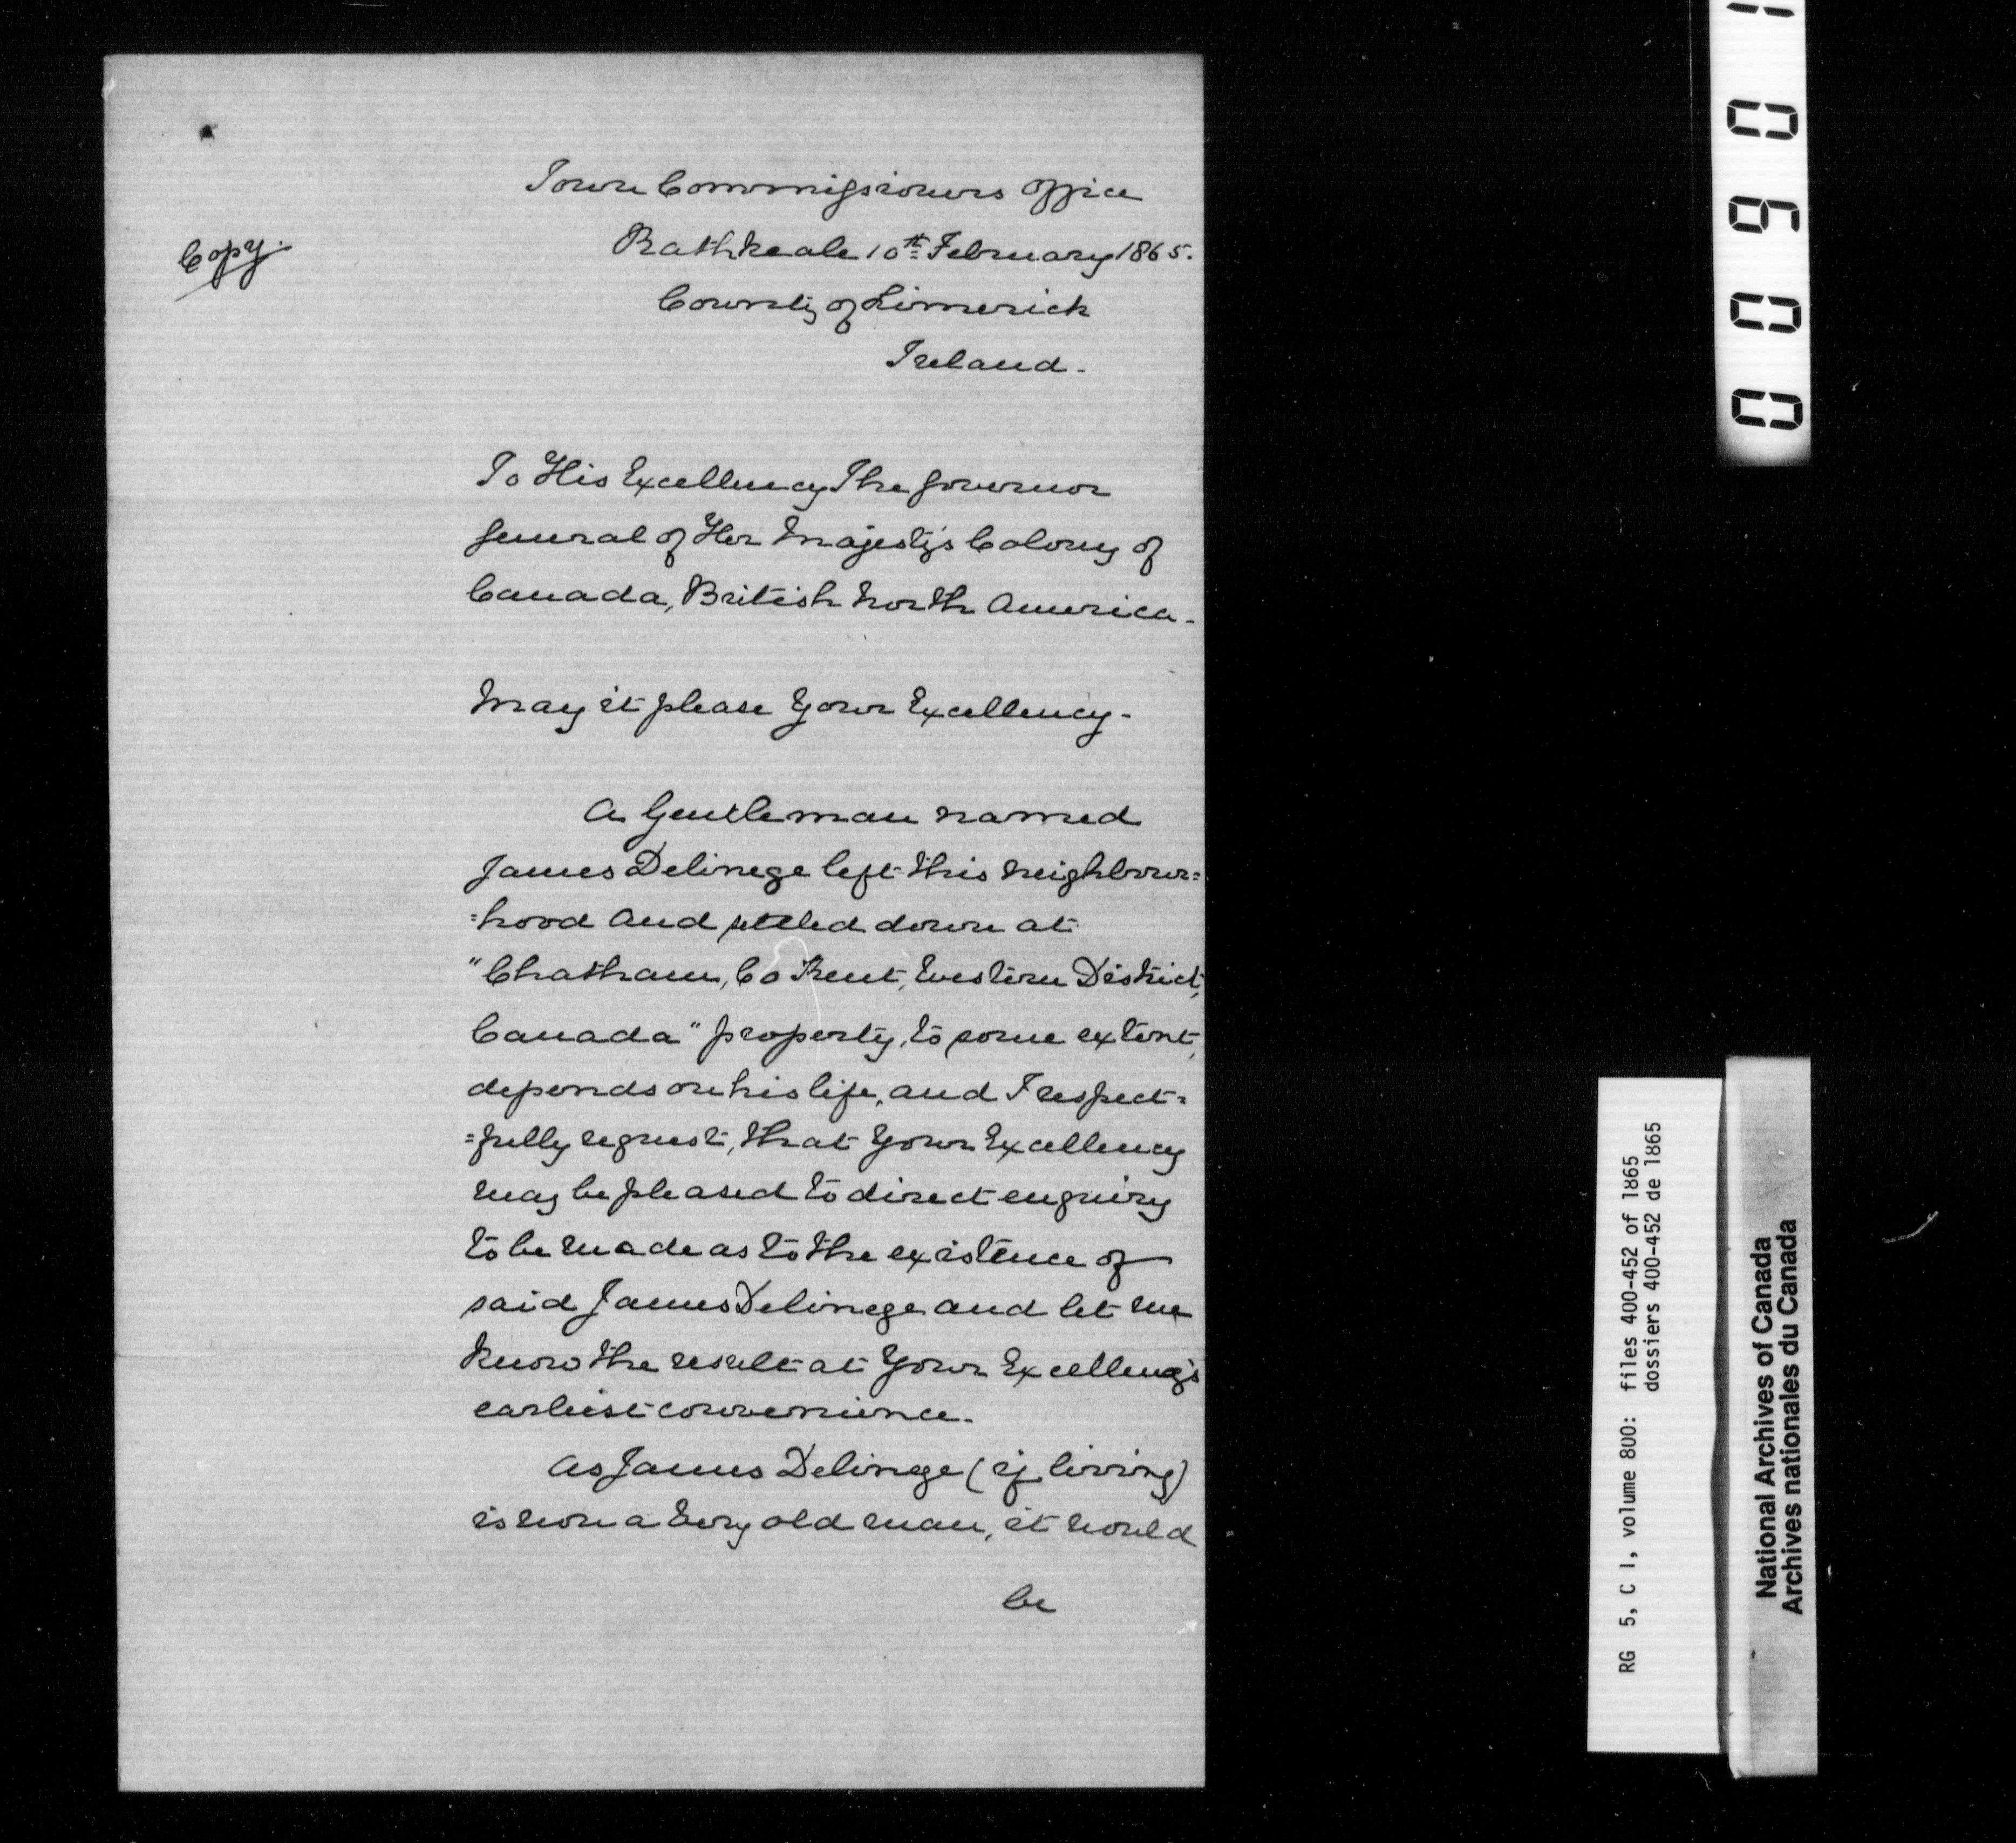 Town Commissioners Office
Copy.
Rathkeale 10th February 1865.
County of Limerick
Ireland.
To His Excellency The Governor
General of Her Majesty's Colony of
Canada, British North America.
May it please Your Excellency.
A Gentleman named
James Delmege left this neighbour=
=hood and settled down at
"Chatham, Co Kent, Western District,
Canada" property, to some extent,
depends on his life, and I respect=
=fully request, that Your Excellency
may be pleased to direct enquiry
to be made as to the existence of
said James Delmege and let me
know the result at Your Excellency's
earliest convenience.
As James Delmege (if living)
is now a very old man, it would
be
00901
RG 5, C 1, volume 800: files 400-452 of 1865
dossiers 400-452 de 1865
National Archives of Canada
Archives nationales du Canada